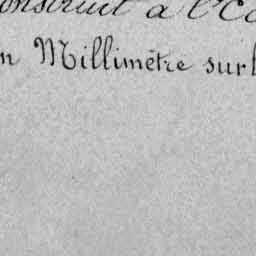 onstruit à l'Éc
n Millimètre sur l